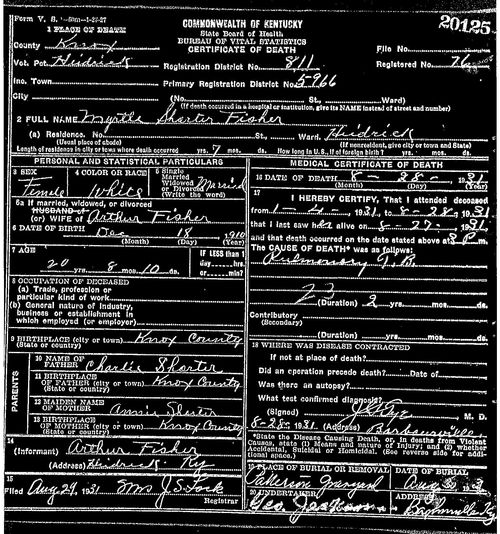 Form V. S.
20125
COMMONWEALTH OF KENTUCKY
State Board of Health
BUREAU OF VITAL STATISTICS
CERTIFICATE OF DEATH
1 PLACE OF DEATH
County Knox
File No.
Vot. Pct. Heidrick Registration District No. 811 Registered No. 76
Inc. Town Primary Registration District No. 5966
City (No. St., Ward)
(If death occurred in a hospital or institution, give its NAME instead of street and number)
2 FULL NAME Myrtle Shorter Fisher
(a) Residence. No. St., Ward. Heidrick
(Usual place of abode) (If nonresident, give city or town and State)
Length of residence in city or town where death occurred yrs. 7 mos. ds. How long in U. S., if of foreign birth? yrs. mos. ds.
PERSONAL AND STATISTICAL PARTICULARS
3 SEX 4 COLOR OR RACE 5 Single Married Widowed or Divorced (Write the word) Married
Female White
5a If married, widowed, or divorced
HUSBAND of
(or) WIFE of Arthur Fisher
6 DATE OF BIRTH Dec 18 1910
(Month) (Day) (Year)
7 AGE IF LESS than 1
day hrs.
20 yrs. 8 mos. 10 ds. or min?
8 OCCUPATION OF DECEASED
(a) Trade, profession or
particular kind of work
(b) General nature of industry,
business or establishment in
which employed (or employer)
9 BIRTHPLACE (city or town) Knox County
(State or country)
PARENTS
10 NAME OF
FATHER Charlie Shorter
11 BIRTHPLACE
OF FATHER (city or town) Knox County
(State or country)
12 MAIDEN NAME
OF MOTHER Annie
13 BIRTHPLACE
OF MOTHER (city or town) Knox County
(State or country)
14
(Informant) Arthur Fisher
(Address) Heidrick Ky
15
Filed Aug 29, 1931
Registrar
MEDICAL CERTIFICATE OF DEATH
16 DATE OF DEATH 8 - 28 - 1931
(Month) (Day) (Year)
17
I HEREBY CERTIFY, That I attended deceased
from 1 - 4, 1931, to 8 - 28, 1931
that I last saw her alive on 8 - 27 - 1931
and that death occurred on the date stated above at m.
The CAUSE OF DEATH* was as follows:
Pulmonary T. B.
23
(Duration) 2 yrs. mos. ds.
Contributory
(Secondary)
(Duration) yrs. mos. ds.
18 WHERE WAS DISEASE CONTRACTED
If not at place of death?
Did an operation precede death? Date of
Was there an autopsy?
What test confirmed diagnosis?
(Signed) M. D.
8-28-1931 (Address) Barbourville
*State the Disease Causing Death, or, in deaths from Violent
Causes, state (1) Means and nature of Injury; and (2) whether
Accidental, Suicidal or Homicidal. (See reverse side for addi-
tional space.)
19 PLACE OF BURIAL OR REMOVAL DATE OF BURIAL
Patterson Graveyard Aug
20 UNDERTAKER ADDRESS
Geo Barbourville Ky